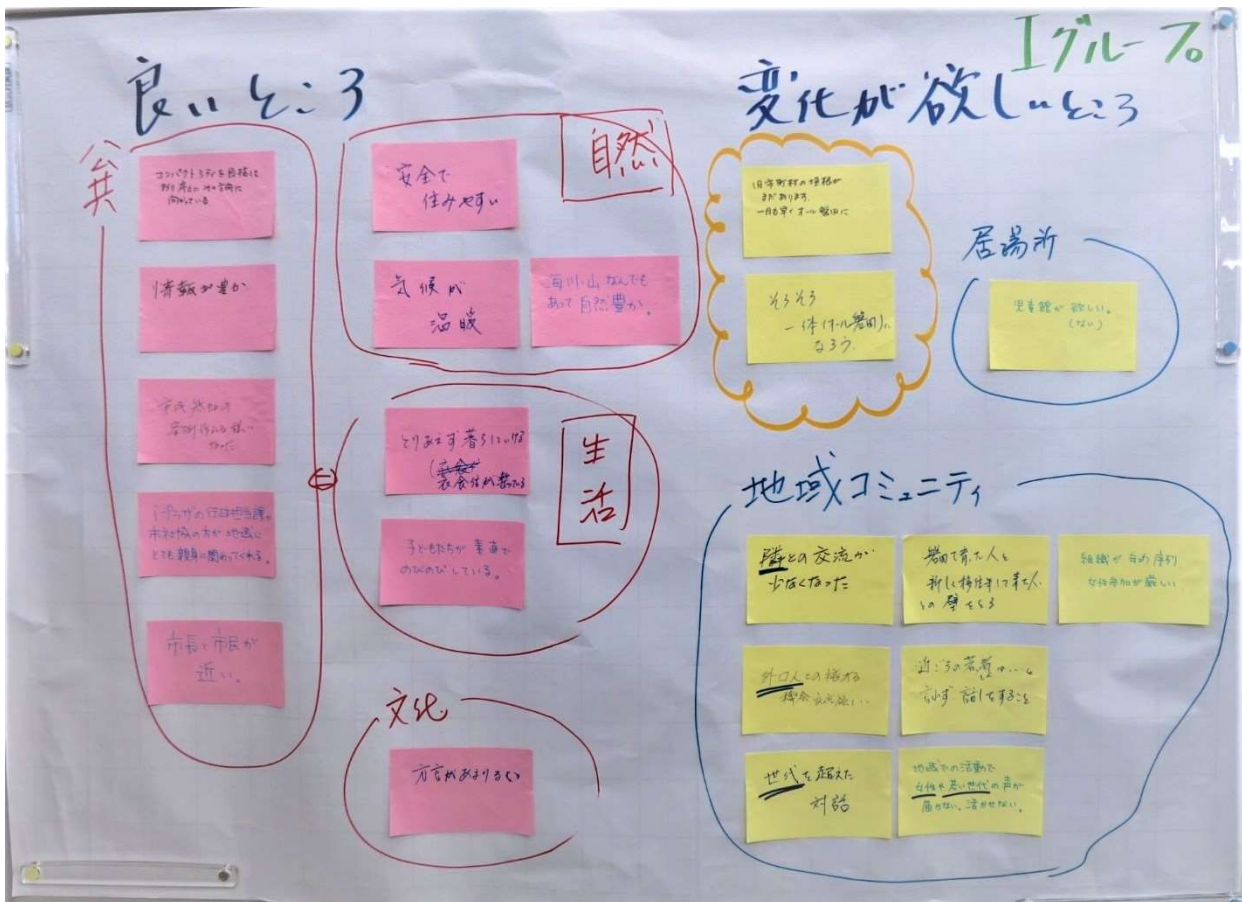 Iグループ
良いところ
公共
コンパクトシティを目指し
情報が豊か
市長と市民が
近い。
とても親身に関わってくれる。
自然
安全で
住みやすい
気候が
温暖
海川山なんでも
あって自然豊か。
生活
とりあえず暮らしていける
子どもたちが素直で
のびのびしている。
文化
方言があまりない
変化が欲しいところ
旧市町村の垣根が
まだあります。
一日も早くオール磐田に
そろそろ
一体(オール磐田)に
なろう
居場所
児童館が欲しい。
(ない)
地域コミュニティ
隣との交流が
少なくなった
磐田で育った人と
新しく移住して来た人
との壁をとる
組織が年功序列
女性参加が厳しい
外口人との接する
機会
近ごろの若者は・・・と
言わず話しをすること
世代を超えた
対話
地域での活動で
女性や若い世代の声が
届かない、活かせない。